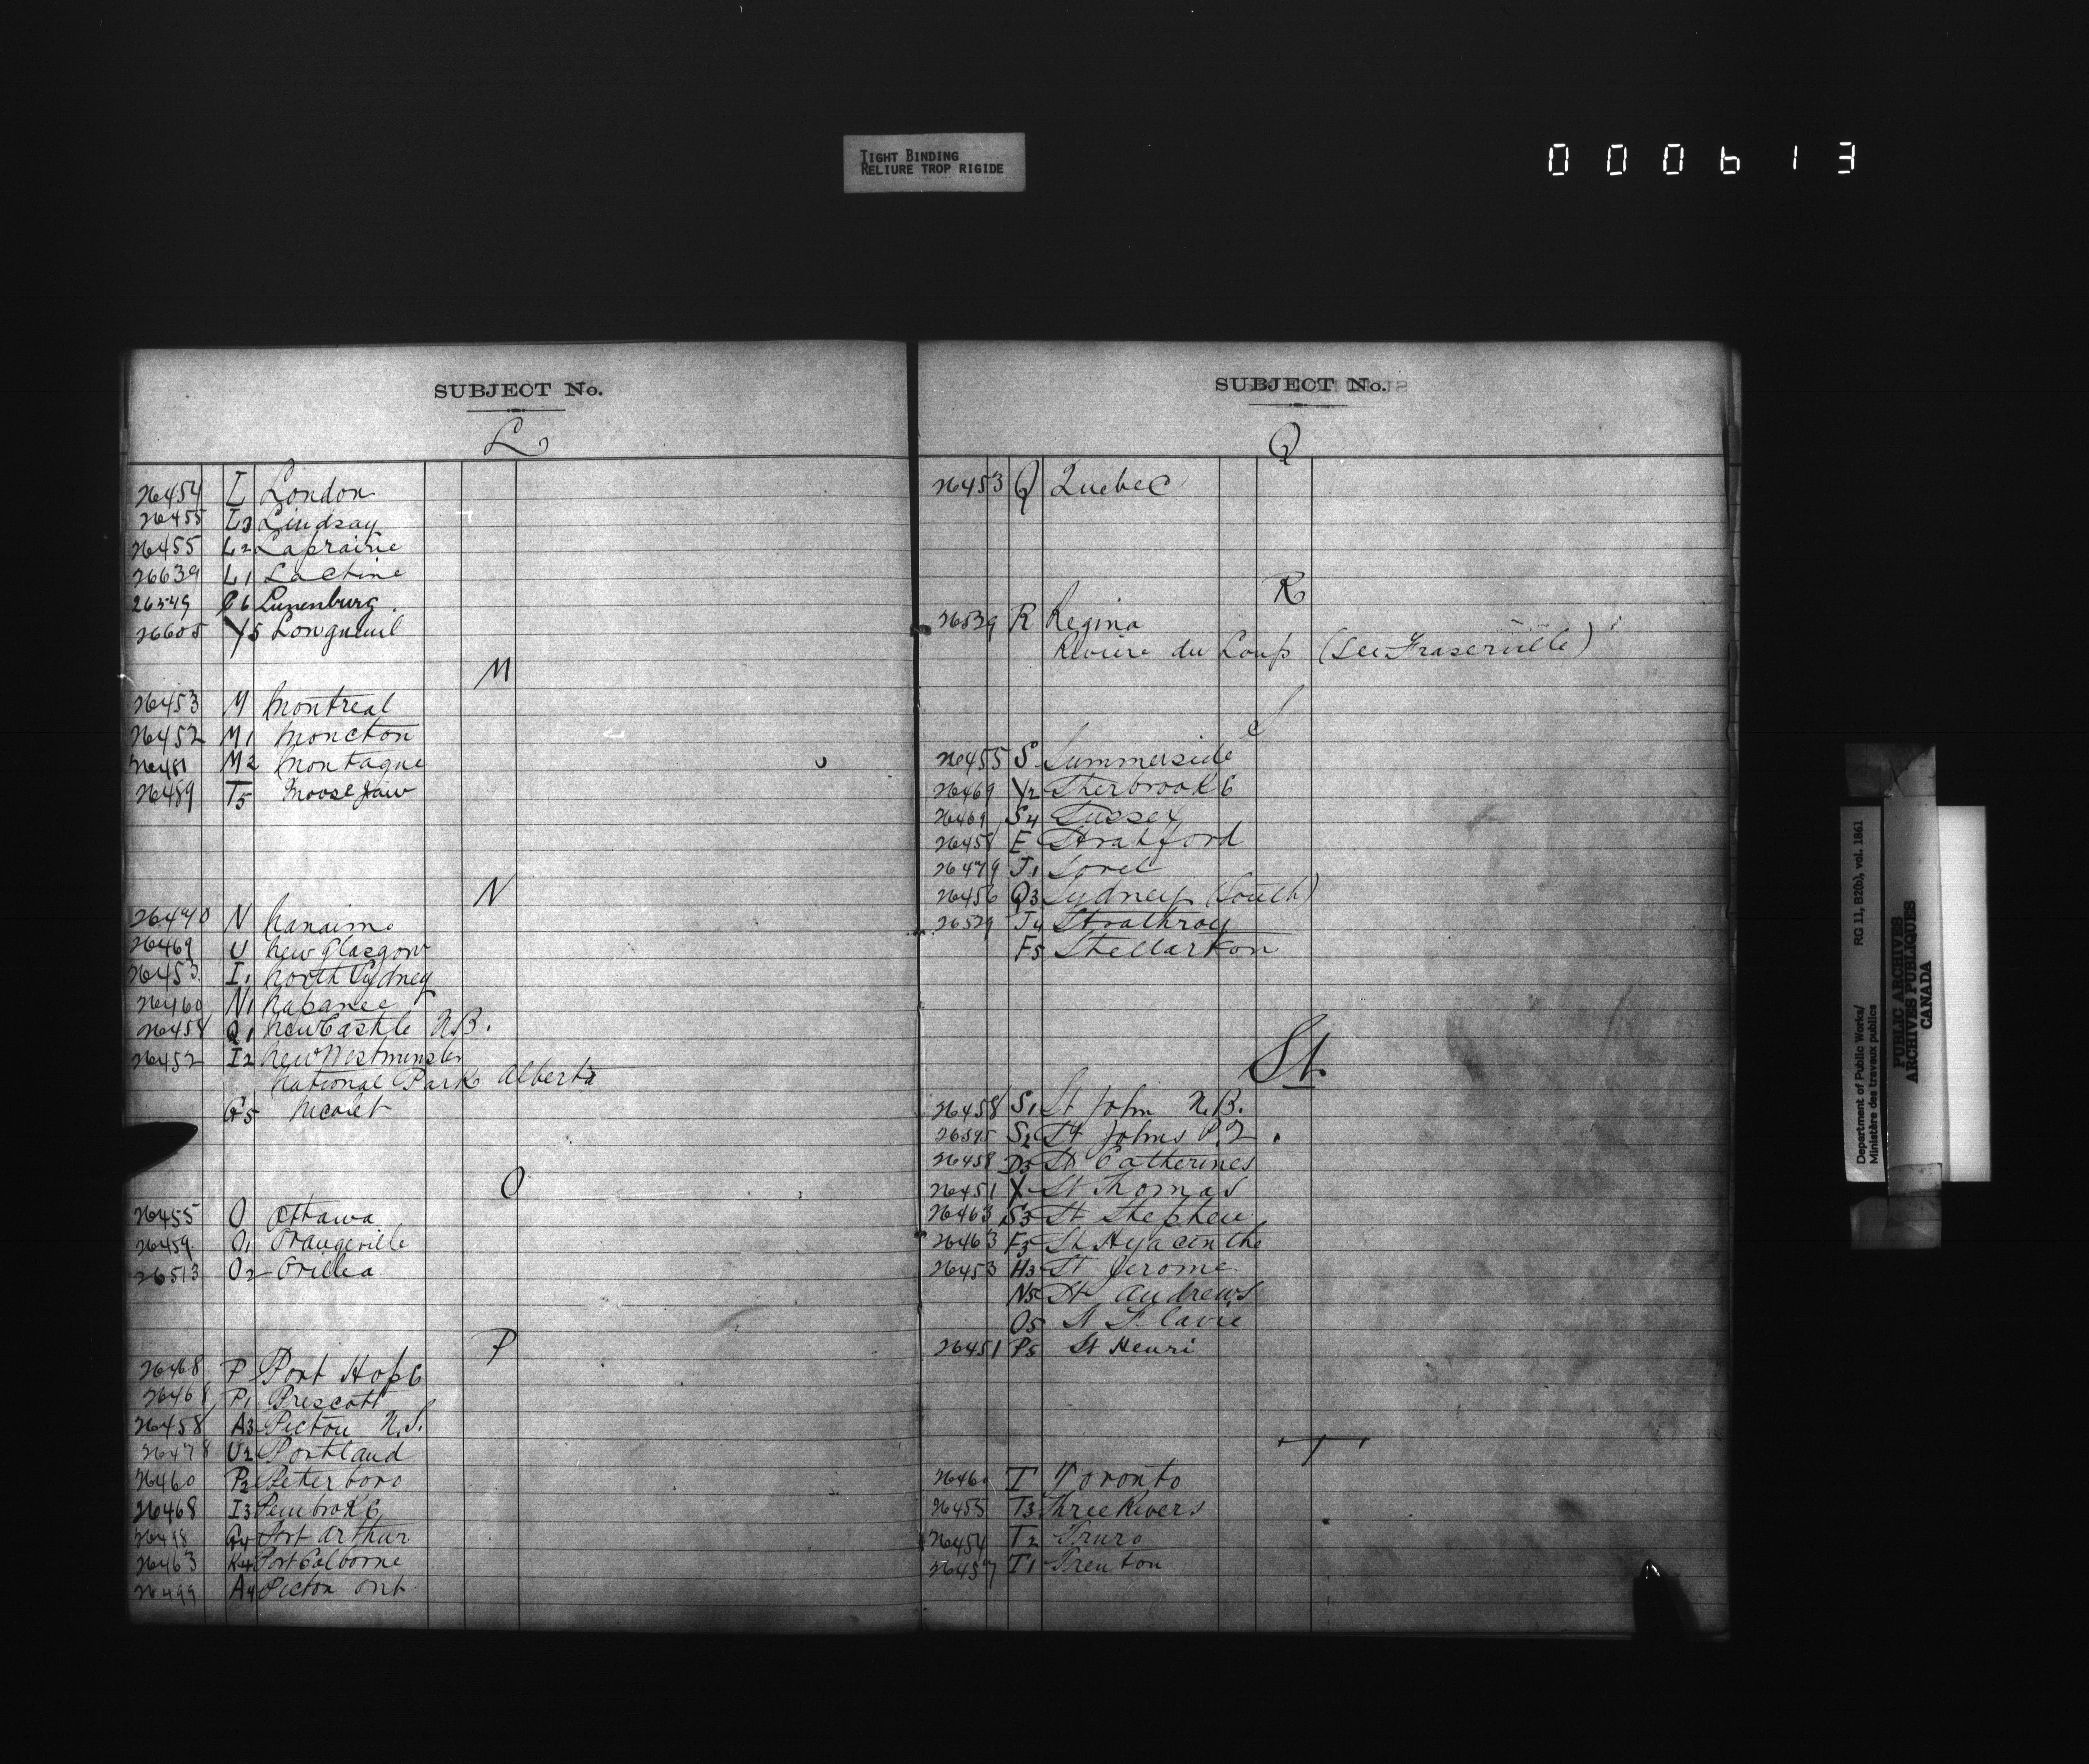 TIGHT BINDING
RELIURE TROP RIGIDE
000613
SUBJECT No.
L
26454 L London
26455 L3 Lindsay
26455 L2 Laprairie
26639 L1 Lachine
26549 C6 Lunenburg.
26605 Y5 Longueuil
M
26453 M Montreal
26452 M1 Moncton
26451 M2 Montague
26489 T5 Moose Jaw
N
26440 N Nanaimo
26469 U New Glasgow
26453 I1 North Sydney
26460 N1 Napanee
26458 Q1 New Castle N.B.
26452 I2 New Westminster
National Park Alberta
G5 Nicolet
O
26455 O Ottawa
26459 O1 Orangeville
26513 O2 Orillia
P
26468 P Port Hope
26468 P1 Prescott
26458 A3 Pictou N.S.
26478 U2 Portland
26460 P2 Peterboro
26468 I3 Pembroke
G4 Port Arthur
26463 K4 Port Colborne
26499 A4 Picton Ont
SUBJECT No.
Q
26453 Q Quebec
R
26539 R Regina
Riviere du Loup (See Fraserville)
S
26455 S Summerside
26469 Y2 Sherbrooke
26469 S4 Sussex
26458 E Stratford
26479 J1 Sorel
26456 Q3 Sydney (South)
26529 J4 Strathroy
F5 Stellarton
St.
26458 S1 St John N.B.
26595 S2 St Johns P.Q.
26458 D3 St Catherines
26451 X St Thomas
26463 S3 St Stephen
26463 F3 St Hyacinthe
26453 H3 St Jerome
N5 St Andrews
O5 St Flavie
26451 P5 St Henri
T
26460 T Toronto
26455 T3 Three Rivers
26454 T2 Truro
26457 T1 Trenton
Department of Public Works/ RG 11, B2(b), vol. 1861
Ministère des travaux publics
PUBLIC ARCHIVES
ARCHIVES PUBLIQUES
CANADA